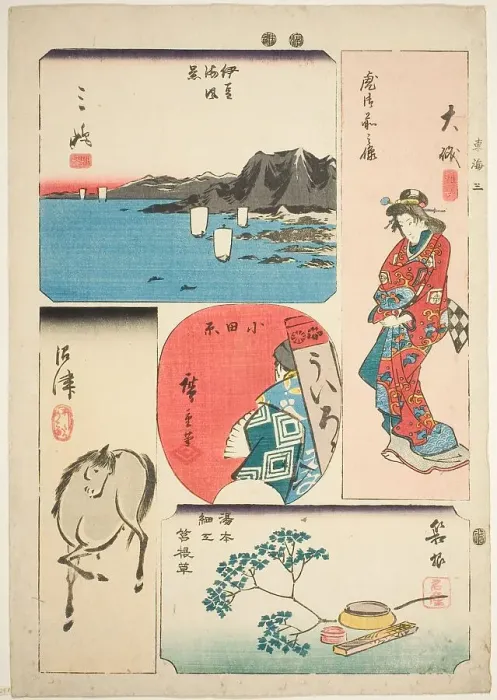 東海 三
大磯
虎御前之像
伊豆
海浜
景
三嶋
小田原
ういろ
廣重筆
沼津
箱根
湯本
細工
箱根草